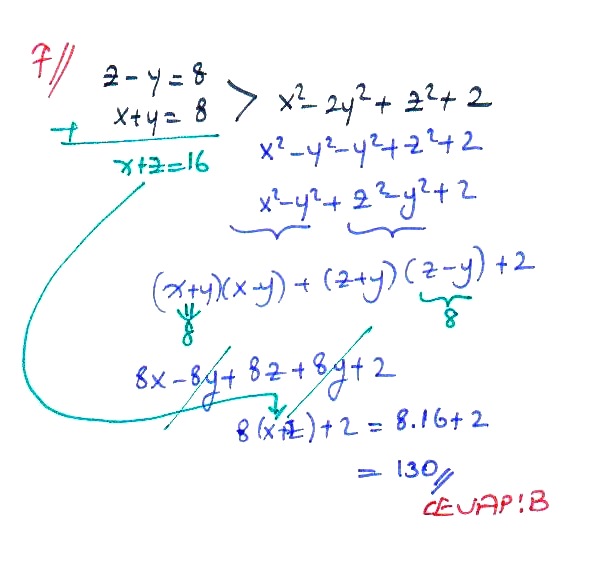 7//
z - y = 8
x + y = 8 > x² - 2y² + z² + 2
+
x + z = 16
x² - y² - y² + z² + 2
x² - y² + z² - y² + 2
(x+y)(x-y) + (z+y)(z-y) + 2
8
8
8x - 8y + 8z + 8y + 2
8(x+z) + 2 = 8.16 + 2
= 130//
CEVAP:B